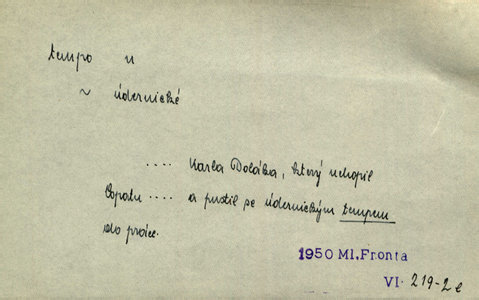 tempo n
~ údernické
.... Karla Doležka, který uchopil
lopatu .... a pustil se údernickým tempem
do práce.
1950 Ml. Fronta
VI. 219-2 e